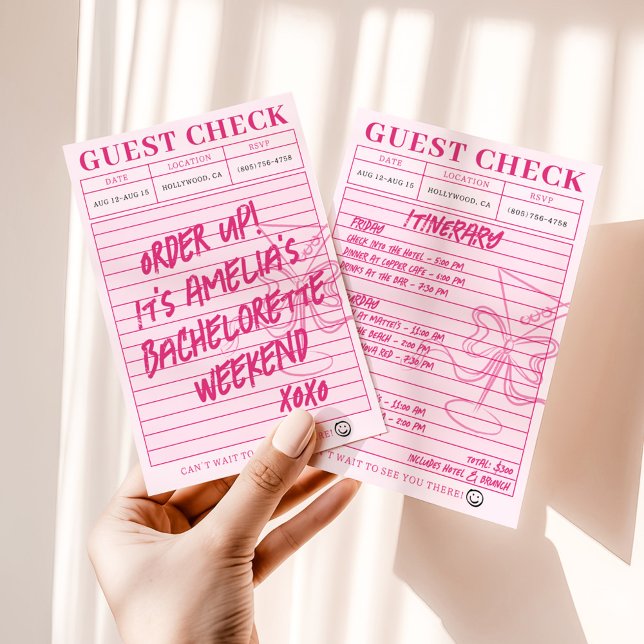 GUEST CHECK
DATE
LOCATION
RSVP
AUG 12-AUG 15
HOLLYWOOD, CA
(805)756-4758
ORDER UP!
IT'S AMELIA'S
BACHELORETTE
WEEKEND
XOXO
CAN'T WAIT TO
HERE!
GUEST CHECK
DATE
LOCATION
RSVP
AUG 12-AUG 15
HOLLYWOOD, CA
(805)756-4758
ITINERARY
FRIDAY
CHECK INTO THE HOTEL - 5:00 PM
DINNER AT COPPER CAFE - 6:00 PM
DRINKS AT THE BAR - 7:30 PM
AT MATTEI'S - 11:00 AM
THE BEACH - 2:00 PM
NOVA RED - 7:30 PM
- 11:00 AM
- 2:00 PM
TOTAL: $300
INCLUDES HOTEL & BRUNCH
WAIT TO SEE YOU THERE!